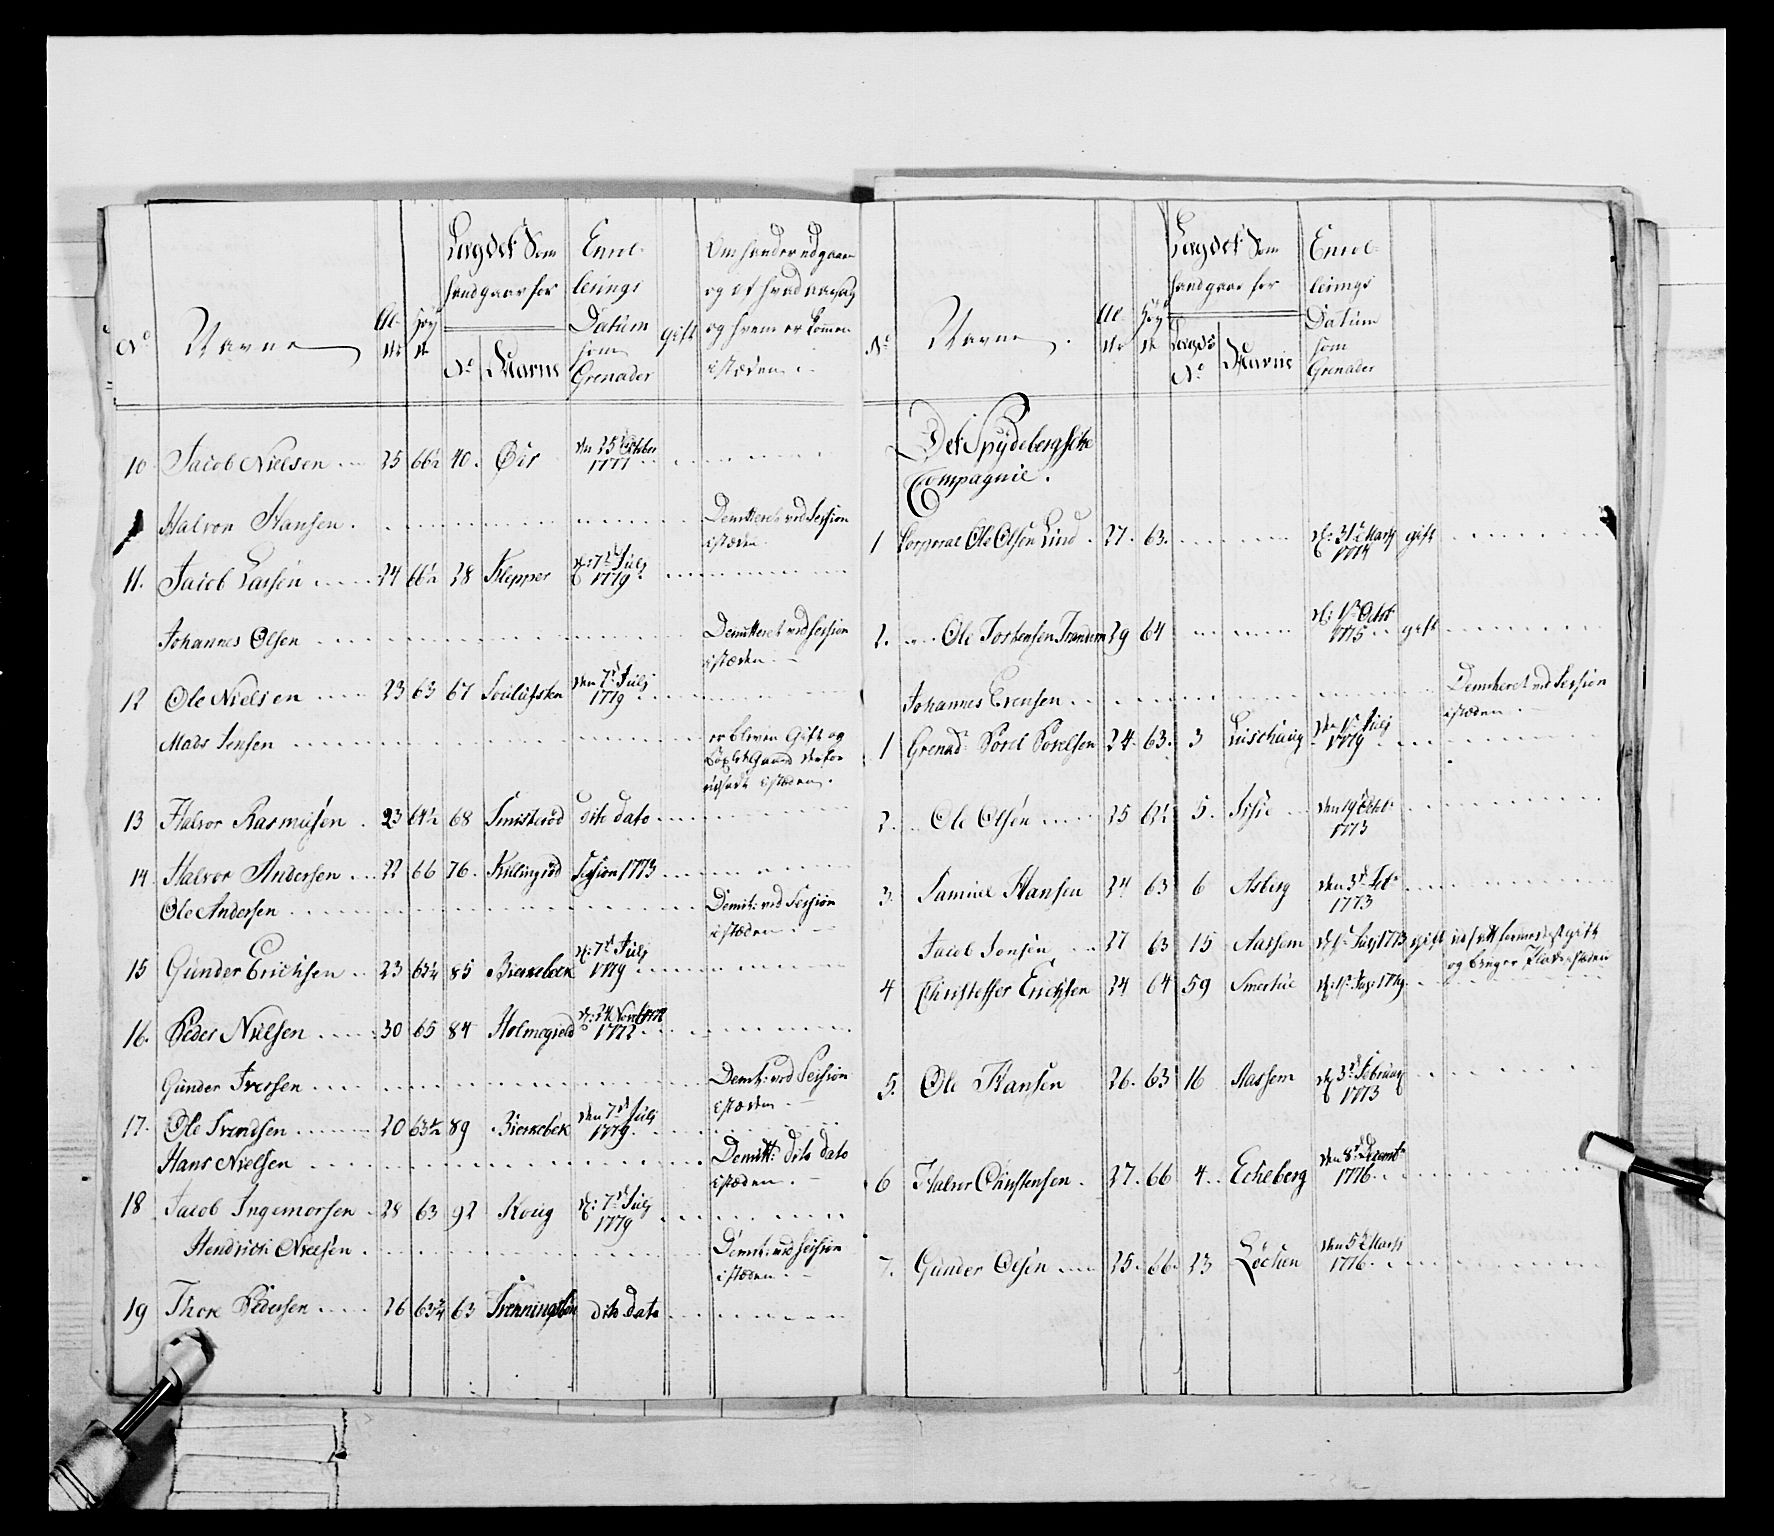 No
Navne
Al-
der
Høy
de
Lægdet Som
hand gaar for
No
Navne
Enrol-
lerings
Datum
som
Grenader
Gift
Om hand er udgaaen
og af hvad aarsag
og hvem er kommen
i stæden
10 Jacob Nielsen 25 66½ 40 Øir den 25de October 1777
Halvor Hansen Demitteret ved Session i stæden
11. Jacob Larsen 24 66½ 28 Klepper d: 7de July 1779
Johannes Olsen Demitteret ved Session i stæden
12 Ole Nielsen 23 63 67 den 7de July 1779
Mads Jensen er bleven Gift og Gaard derfor udsadt i stæden
13 Halvor Rasmusen 23 64½ 68 Smisteröd dito dato
14 Halvor Andersen 22 66 76 Killingröd Session 1773
Ole Andersen Demit: ved Session i stæden
15 Gunder Erichsen 23 63¼ 85 Bierkebek d: 7de July 1779
16. Peder Nielsen 30 65 84 Holmegield d: 24 Novbr 1772
Gunder Iversen Demit: ved Session i stæden
17. Ole Svendsen 20 63½ 89 Bierkebek den 7de July 1779
Hans Nielsen Demitt: dito dato i stæden
18 Jacob Ingemorsen 28 63 92 Krog d: 7de July 1779
Hendrich Nielsen Demit: ved Session i stæden
19 Thore Pedersen 26 63¾ 63 dito dato
No
Navne
Al-
der
Høy
de
Lægdet Som
hand gaar for
Lægds
No
Navne
Enrol-
lerings
Datum
som
Grenader
Det Spydebergske
Compagnie.
1 Corporal Ole Olsen Lund 27. 63. d: 31te Marty 1774 gift
2. Ole Torstensen Trandem 29 64 d: 1de Octbr 1775 gift
Johannes Evensen Demitteret ved Session i stæden
1 Grenad: Povel Povelsen 24. 63. 3 den 1de July 1779
2. Ole Olsen 25 62½ 5. den 19de Octbr 1773
3. Samuel Hansen 24 63 6 Asberg den 3de Feb: 1773
Jacob Jonsen 27 63 15 Aassem 1773 gift og bruger Plads i stæden
4 Christoffer Erichsen 24 64 59 Smertue 1779
5. Ole Hansen 26. 63 16 Aassem d: 3de February 1773
6 Halvor Christensen 27. 66 4. Echeberg den 8de Decembr 1776
7. Gunder Olsen 25. 66. 23 Löchen den 5te Marty 1776